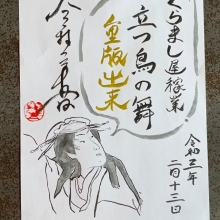 くらまし屋稼業
立つ鳥の舞
重版出来
令和五年
二月十三日
今村翔吾